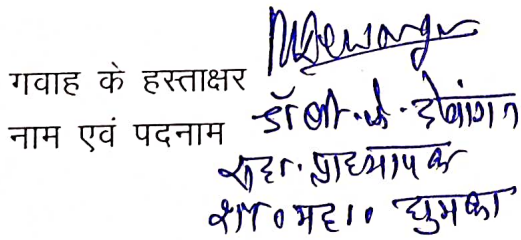 गवाह के हस्ताक्षर Dewangan
नाम एवं पदनाम डॉ. बी. के. देवांगन
सहा. प्राध्यापक
शा० महा० घुमका